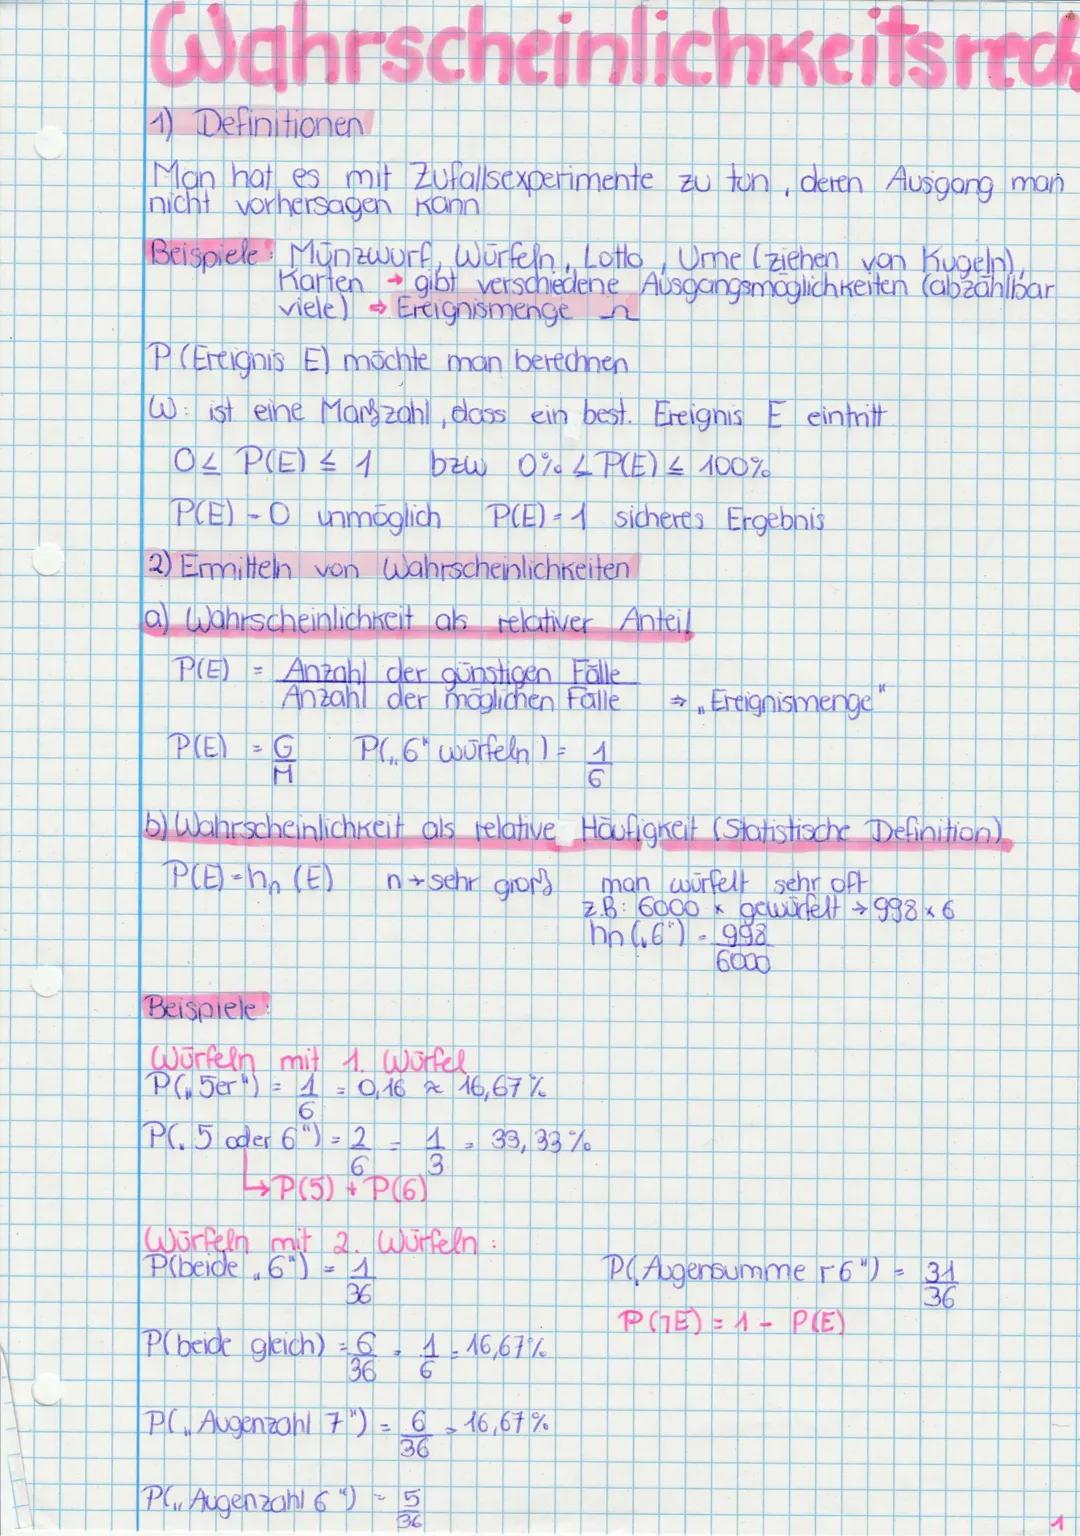 Wahrscheinlichkeitsrech
1) Definitionen
Man hat es mit Zufallsexperimente zu tun, deren Ausgang man
nicht vorhersagen kann
Beispiele: Münzwurf, Würfeln, Lotto, Urne (ziehen von Kugeln),
Karten → gibt verschiedene Ausgangsmöglichkeiten (abzählbar
viele) ⇒ Ereignismenge Ω
P(Ereignis E) möchte man berechnen
W: ist eine Marßzahl, dass ein best. Ereignis E eintritt
0 ≤ P(E) ≤ 1 bzw 0% ≤ P(E) ≤ 100%
P(E) = 0 unmöglich P(E) = 1 sicheres Ergebnis
2) Ermitteln von Wahrscheinlichkeiten
a) Wahrscheinlichkeit als relativer Anteil
P(E) = Anzahl der günstigen Fälle
Anzahl der möglichen Fälle ⇒ „Ereignismenge"
P(E) = G/M P(„6" würfeln) = 1/6
b) Wahrscheinlichkeit als relative Häufigkeit (Statistische Definition)
P(E) = hn (E) n → sehr groß man würfelt sehr oft
z.B: 6000 x gewürfelt → 998 x 6
hn („6") = 998/6000
Beispiele:
Würfeln mit 1. Würfel
P(„5er") = 1/6 = 0,16 ≈ 16,67%
P(„5 oder 6") = 2/6 = 1/3 = 33,33%
↳ P(5) + P(6)
Würfeln mit 2. Würfeln:
P(beide „6") = 1/36 P(„Augensumme ┌6") = 31/36
P(¬E) = 1 - P(E)
P(beide gleich) = 6/36 = 1/6 = 16,67%
P(„Augenzahl 7") = 6/36 = 16,67%
P(„Augenzahl 6") = 5/36
1